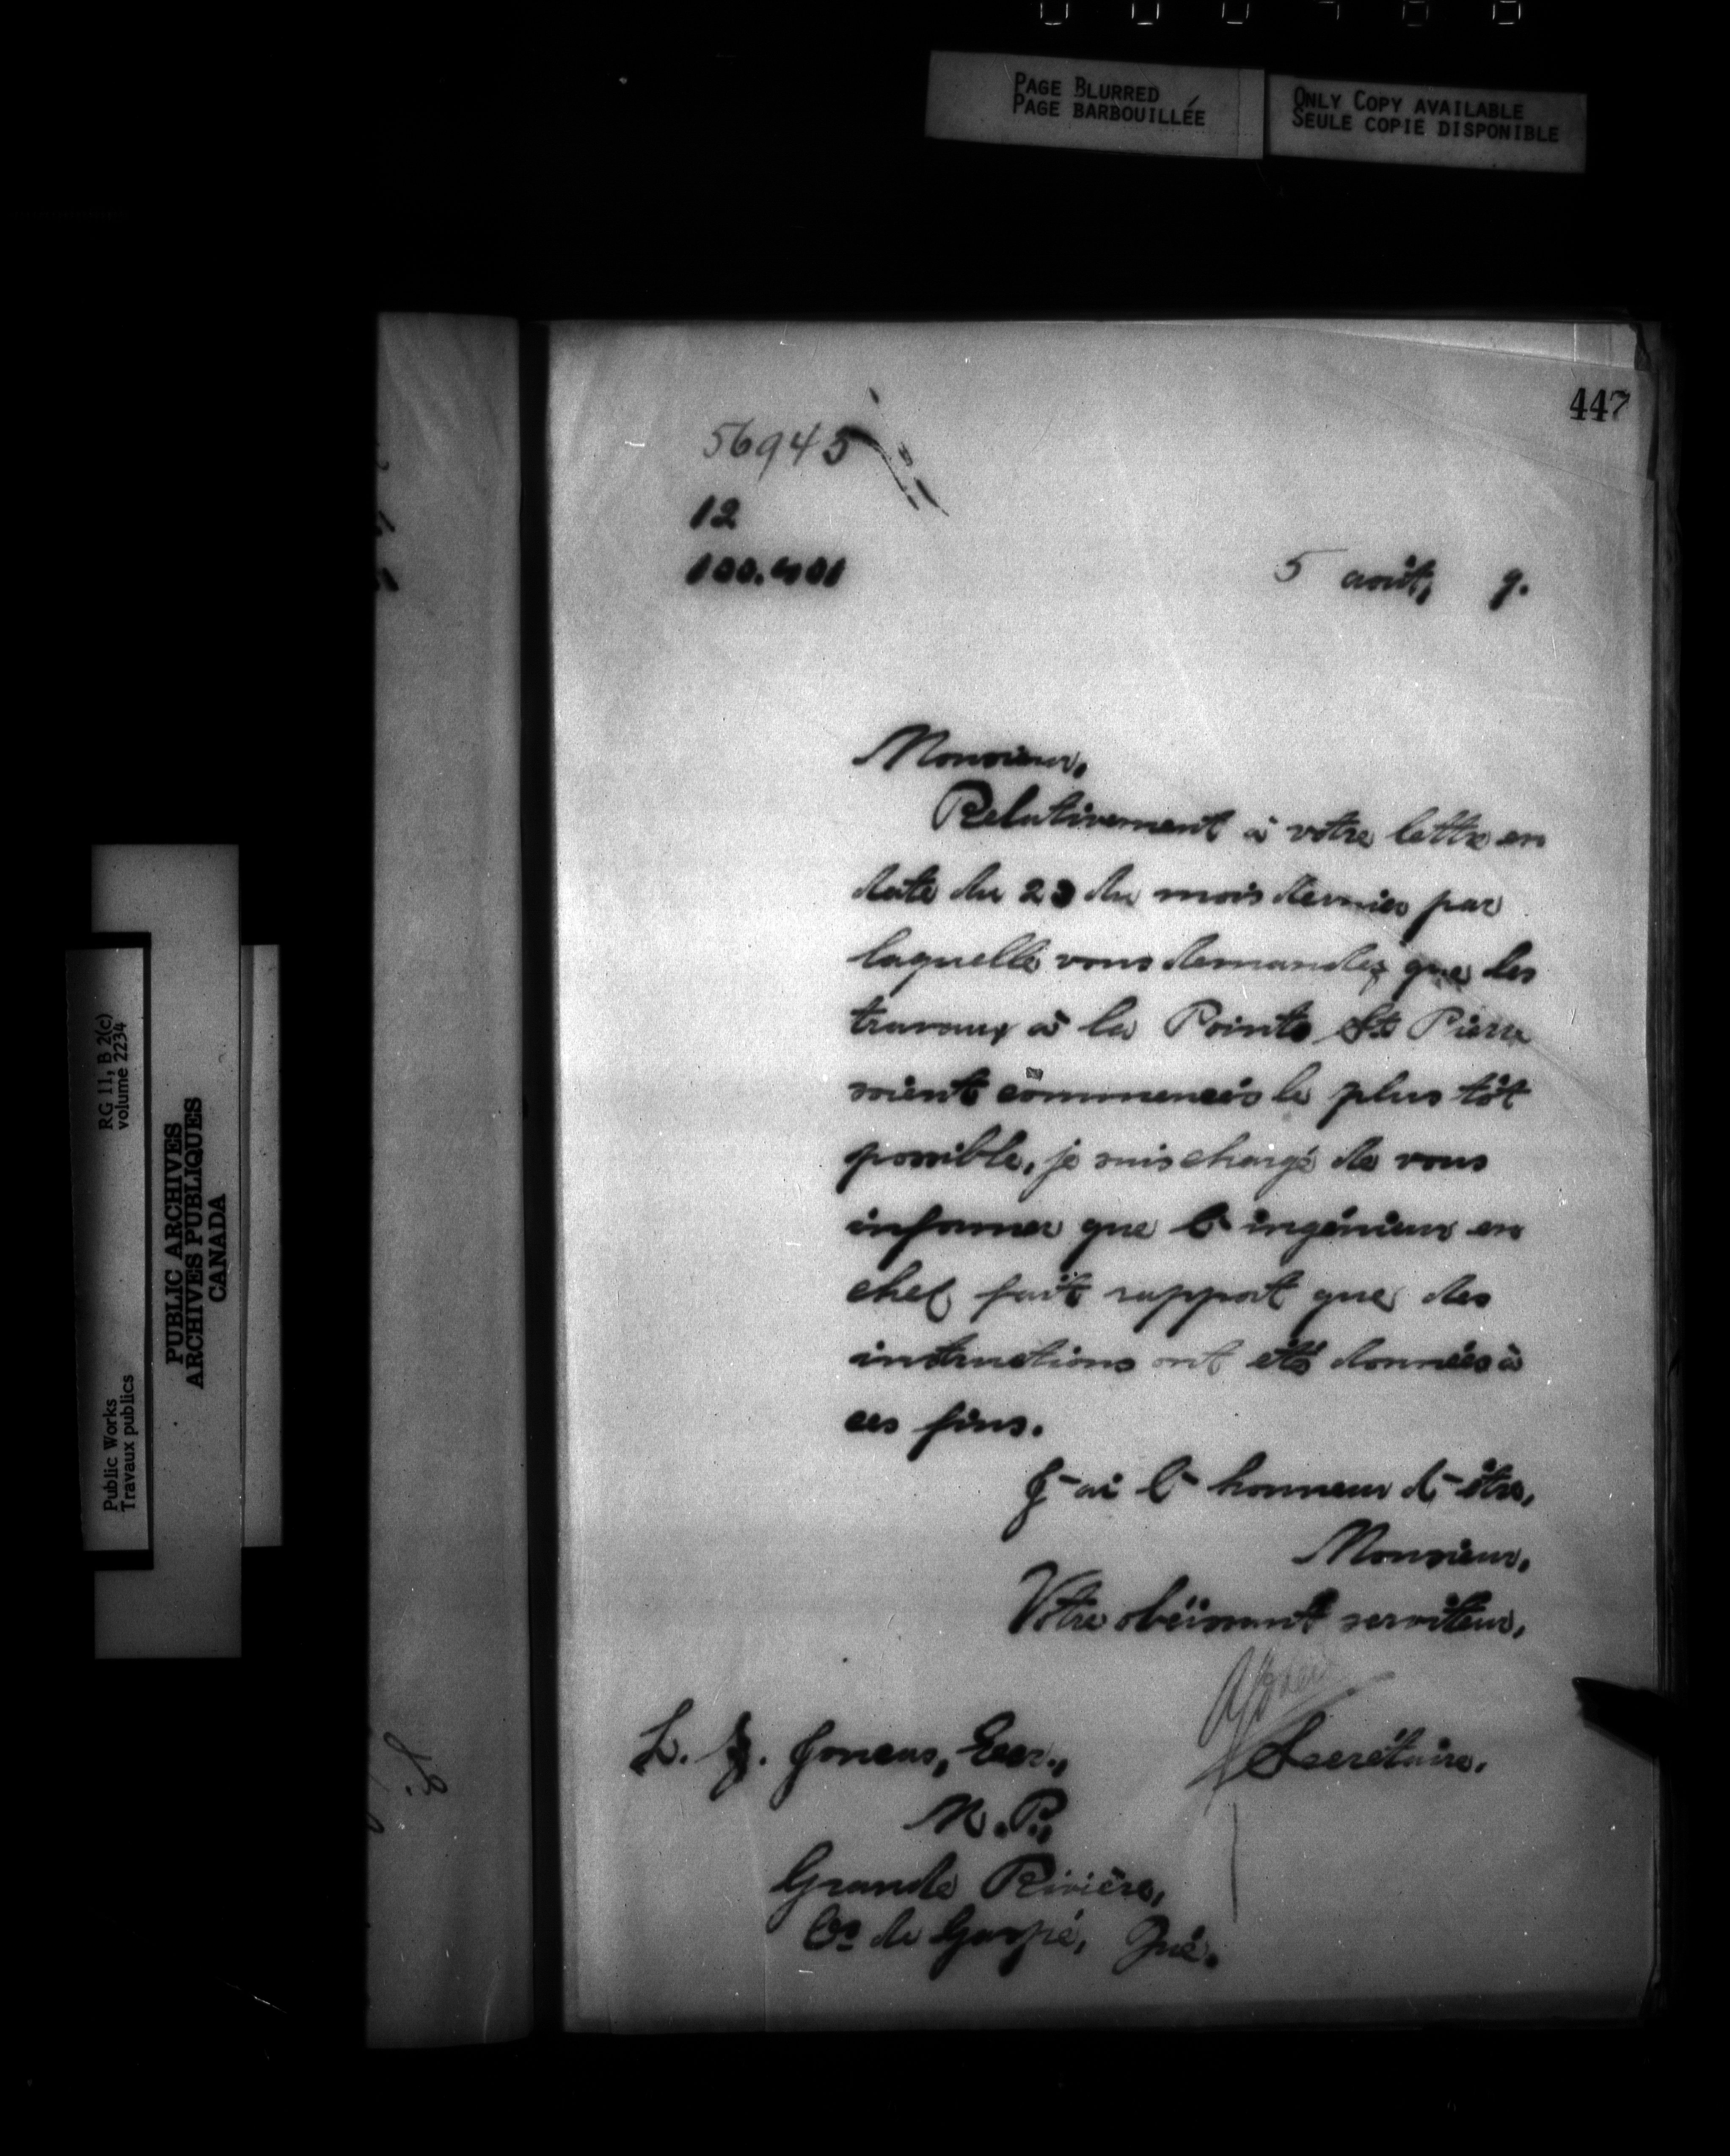 PAGE BLURRED
PAGE BARBOUILLÉE
ONLY COPY AVAILABLE
SEULE COPIE DISPONIBLE
447
56945
12
100.401
5 août, 9.
Monsieur,
Relativement à votre lettre en
date du 23 du mois dernier par
laquelle vous demandez que les
travaux à la Pointe St. Pierre
soient commencés le plus tôt
possible, je suis chargé de vous
informer que l'ingénieur en
chef fait rapport que des
instructions ont été données à
ces fins.
J'ai l'honneur d'être,
Monsieur,
Votre obéissant serviteur,
Secrétaire.
L. Z. Joncas, Ecr.,
M.P.,
Grande Rivière,
Co de Gaspé, Qué.
RG 11, B 2(c)
volume 2234
Public Works
Travaux publics
PUBLIC ARCHIVES
ARCHIVES PUBLIQUES
CANADA